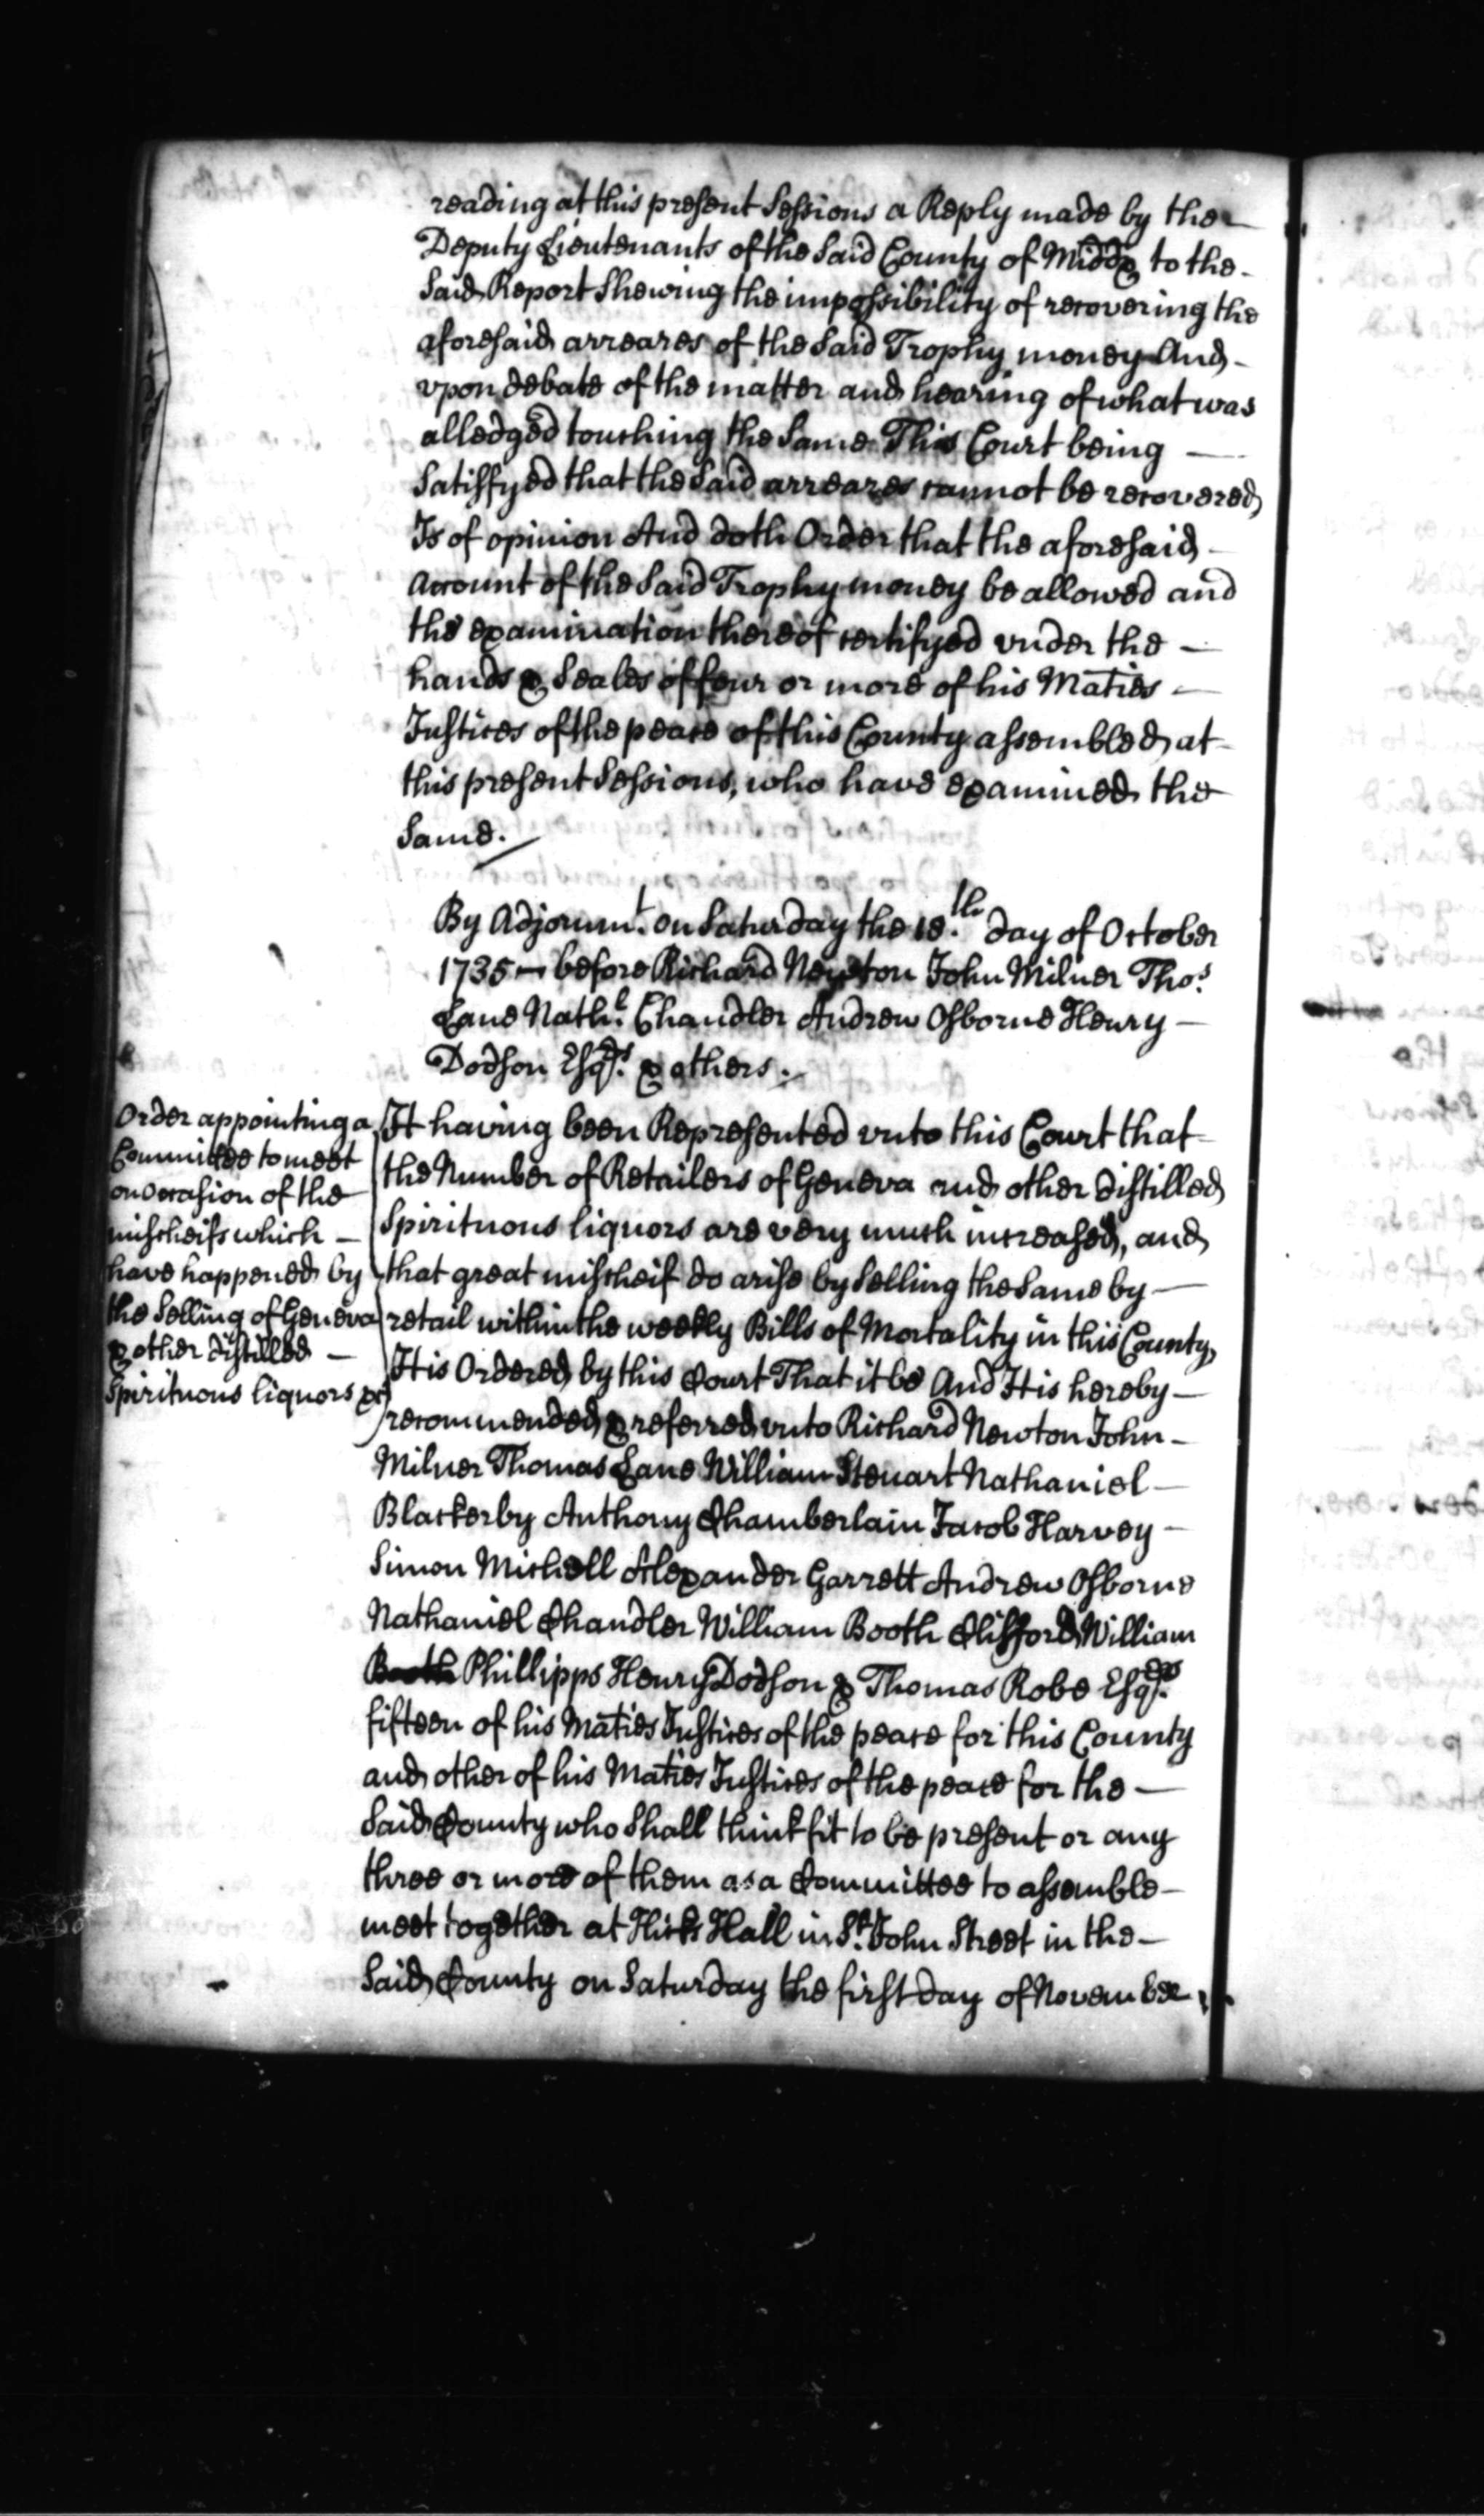 reading at this present Sessions a Reply made by the
Deputy Lieutenants of the Said County of Middx to the
Said Report Shewing the impossibility of recovering the
aforesaid arreares of the Said Trophy money And
vpon debate of the matter and hearing of what was
alledged touching the Same This Court being
Satisfyed that the Said arreares cannot be recovered
Is of opinion And doth Order that the aforesaid
Account of the Said Trophy money be allowed and
the examination thereof certifyed vnder the
hands & Seales of four or more of his Maties
Justices of the peace of this County assembled at
this present Sessions, who have examined the
Same.
By Adjournmt. on Saturday the 18th. day of October
1735 before Richard Newton John Milner Thos.
Lane Nathl. Chandler Andrew Osborne Henry
Dodson Esqrs. & others.
Order appointing a
Committee to meet
on occasion of the
mischeifs which
have happened by
the Selling of Geneva
& other distilled
Spirituous liquors &c
It having been Represented vnto this Court that
the Number of Retailers of Geneva and other distilled
Spirituous liquors are very much increased, and
that great mischeif do arise by Selling the Same by
retail within the weekly Bills of Mortality in this County,
It is Ordered by this Court That it be And It is hereby
recommended & referred vnto Richard Newton John
Milner Thomas Lane William Steuart Nathaniel
Blackerby Anthony Chamberlain Jacob Harvey
Simon Michell Alexander Garrett Andrew Osborne
Nathaniel Chandler William Booth Clifford William
Booth Phillipps Henry Dodson & Thomas Robe Esqrs.
fifteen of his Maties Justices of the peace for this County
and other of his Maties Justices of the peace for the
Said County who Shall think fit to be present or any
three or more of them as a Committee to assemble
meet together at Hicks Hall in St. John Street in the
Said County on Saturday the first day of November